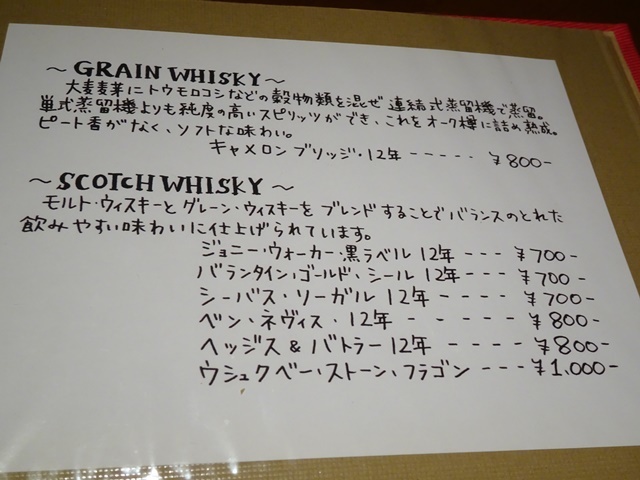 ～ GRAIN WHISKY ～
大麦麦芽にトウモロコシなどの穀物類を混ぜ 連結式蒸留機で蒸留。
単式蒸留機よりも純度の高いスピリッツができ、これをオーク樽に詰め熟成。
ピート香がなく、ソフトな味わい。
キャメロンブリッジ・12年 ----- ¥800-
～ SCOTCH WHISKY ～
モルト・ウィスキーとグレーン・ウィスキーをブレンドすることでバランスのとれた
飲みやすい味わいに仕上げられています。
ジョニー・ウォーカー・黒ラベル 12年 --- ¥700-
バランタイン・ゴールド、シール 12年 ---- ¥700-
シーバス・リーガル 12年 ---- ¥700-
ベン・ネヴィス・12年 - - - - - ¥800-
ヘッジス & バトラー 12年 ---- ¥800-
ウシュクベー・ストーン、フラゴン --- ¥1,000-